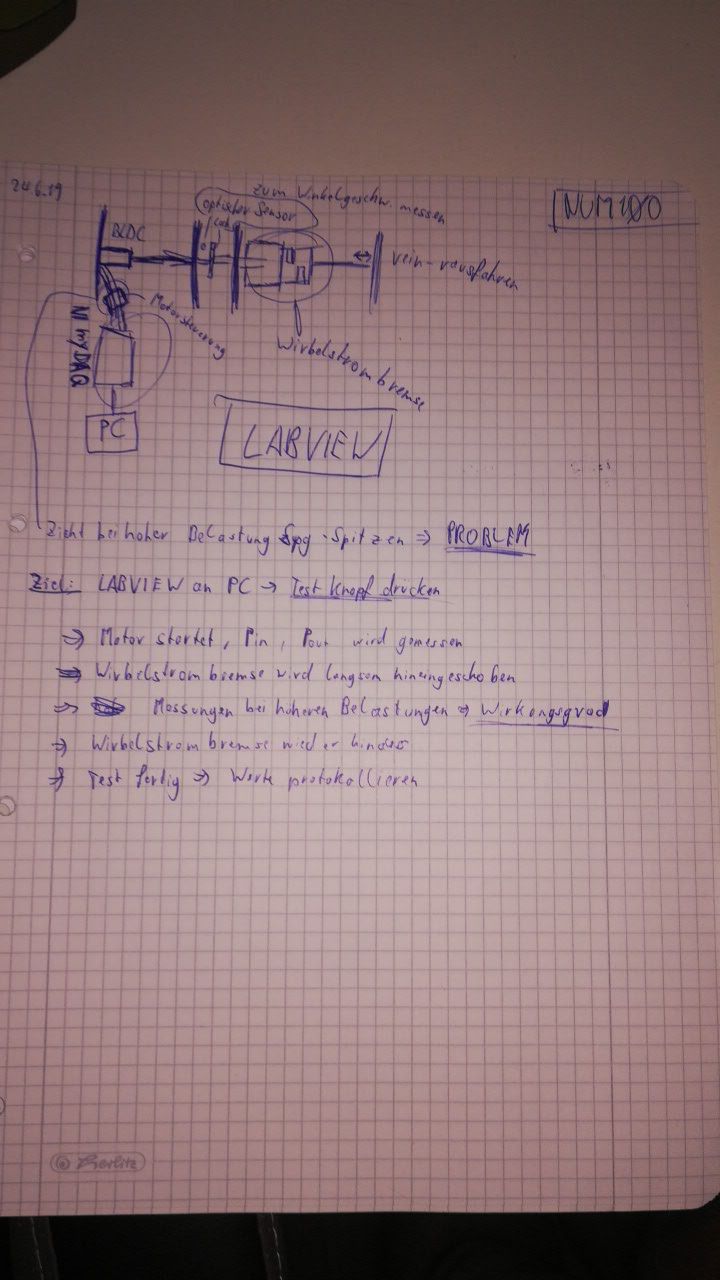 24.6.19
NUM100
zum Winkelgeschw. messen
optischer Sensor
BLDC
rein-rausfahren
Motorsteuerung
Wirbelstrombremse
NI myDAQ
PC
LABVIEW
Zieht bei hoher Belastung Spg-Spitzen ⇒ PROBLEM
Ziel: LABVIEW an PC → Test Knopf drucken
⇒ Motor startet, Pin, Pout wird gemessen
⇒ Wirbelstrombremse wird langsam hineingeschoben
⇒ Messungen bei höheren Belastungen ⇒ Wirkungsgrad
⇒ Wirbelstrombremse wieder hinaus
⇒ Test fertig ⇒ Werte protokollieren
Berlitz